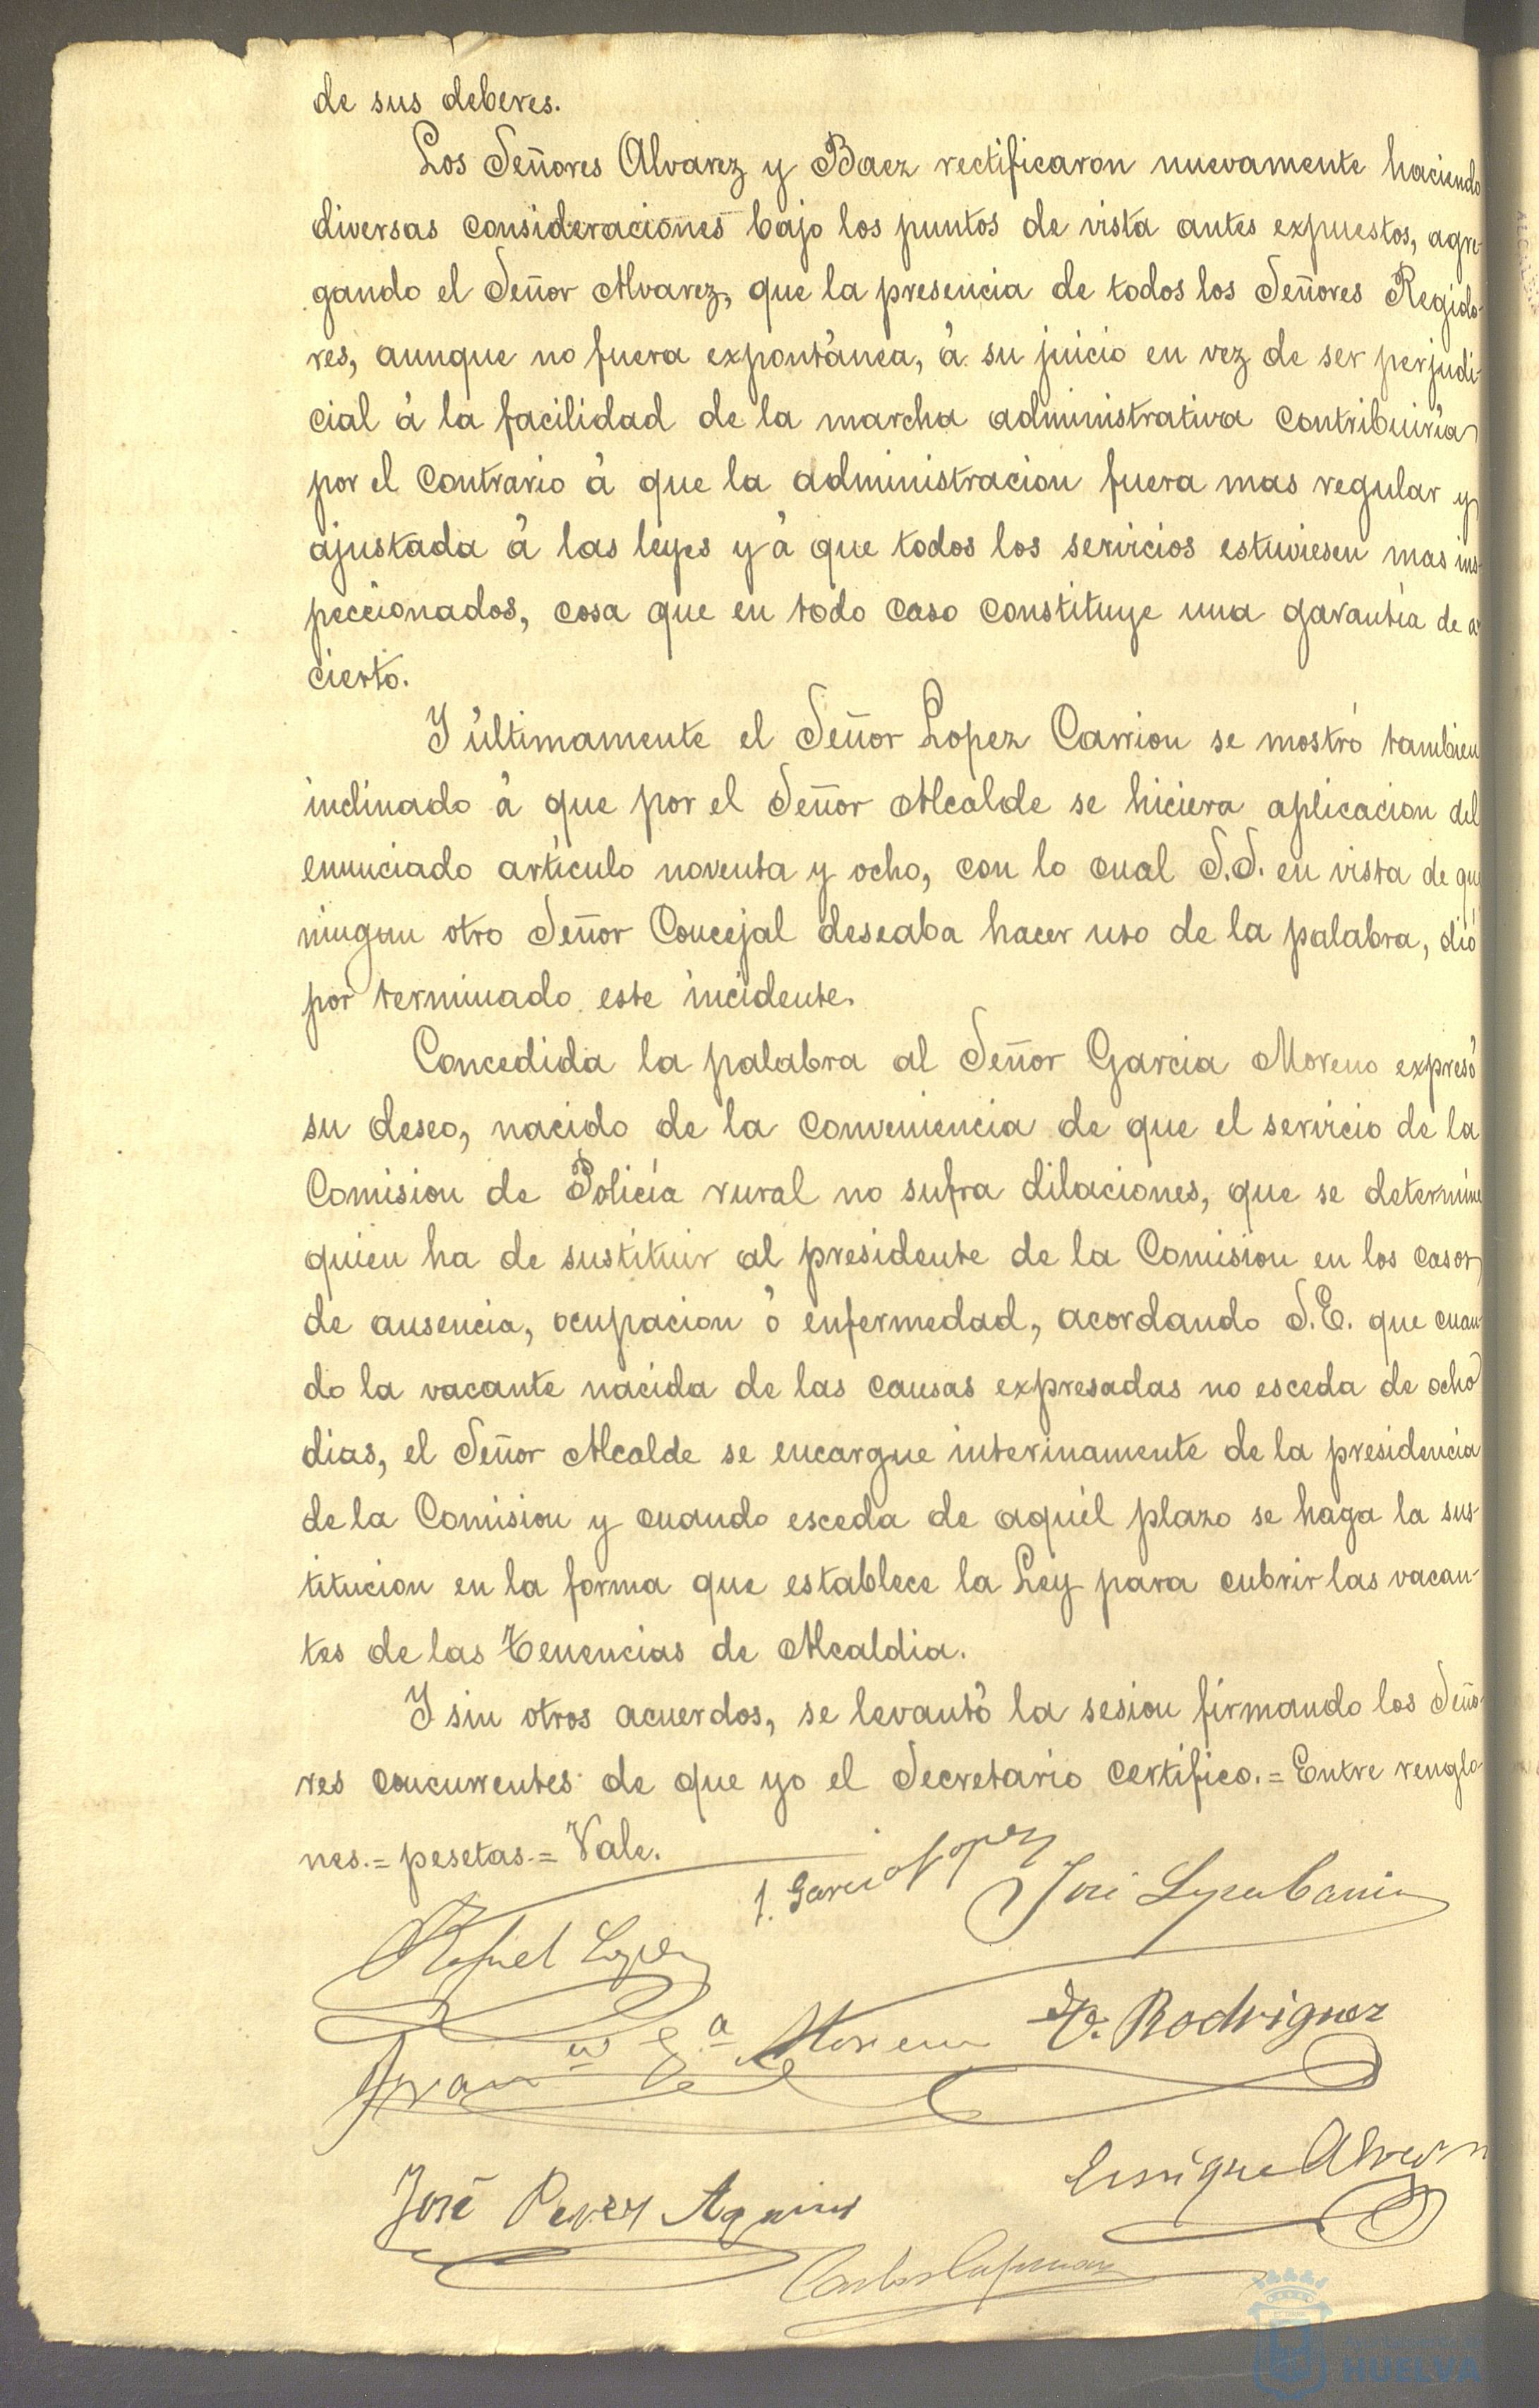 de sus deberes.
Los Señores Alvarez y Baez rectificaron nuevamente haciendo
diversas consideraciones bajo los puntos de vista antes expuestos, agre-
gando el Señor Alvarez, que la presencia de todos los Señores Regido-
res, aunque no fuera expontánea, á su juicio en vez de ser perjudi-
cial á la facilidad de la marcha administrativa contribuiria
por el contrario á que la administracion fuera mas regular y
ajustada á las leyes y á que todos los servicios estuviesen mas ins-
peccionados, cosa que en todo caso constituye una garantía de a-
cierto.
Y últimamente el Señor Lopez Carrion se mostró tambien
inclinado á que por el Señor Alcalde se hiciera aplicacion del
enunciado artículo noventa y ocho, con lo cual S.S. en vista de que
ningun otro Señor Concejal deseaba hacer uso de la palabra, dió
por terminado este incidente.
Concedida la palabra al Señor Garcia Moreno expresó
su deseo, nacido de la conveniencia de que el servicio de la
Comision de Policía rural no sufra dilaciones, que se determine
quien ha de sustituir al presidente de la Comision en los casos
de ausencia, ocupacion ó enfermedad, acordando S.E. que cuan-
do la vacante nacida de las causas expresadas no esceda de ocho
dias, el Señor Alcalde se encargue interinamente de la presidencia
de la Comision y cuando esceda de aquél plazo se haga la sus-
titucion en la forma que establece la Ley para cubrir las vacan-
tes de las Tenencias de Alcaldia.
Y sin otros acuerdos, se levantó la sesion firmando los Seño-
res concurrentes de que yo el Secretario certifico.= Entre renglo-
nes.= pesetas.= Vale.
J. Garcia Lopez José Lopez Carrion
Rafael Lopez
Fran.co G.a Moreno V. Rodriguez
Enrique Alvarez
José Perez
HUELVA